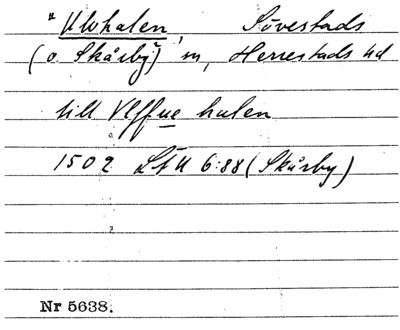 "Ulvhalen, Sövestads
(o. Skårby) sn, Herrestads hd
till Vlffue halen
1502 LÄU 6:88 (Skårby)
Nr 5638.